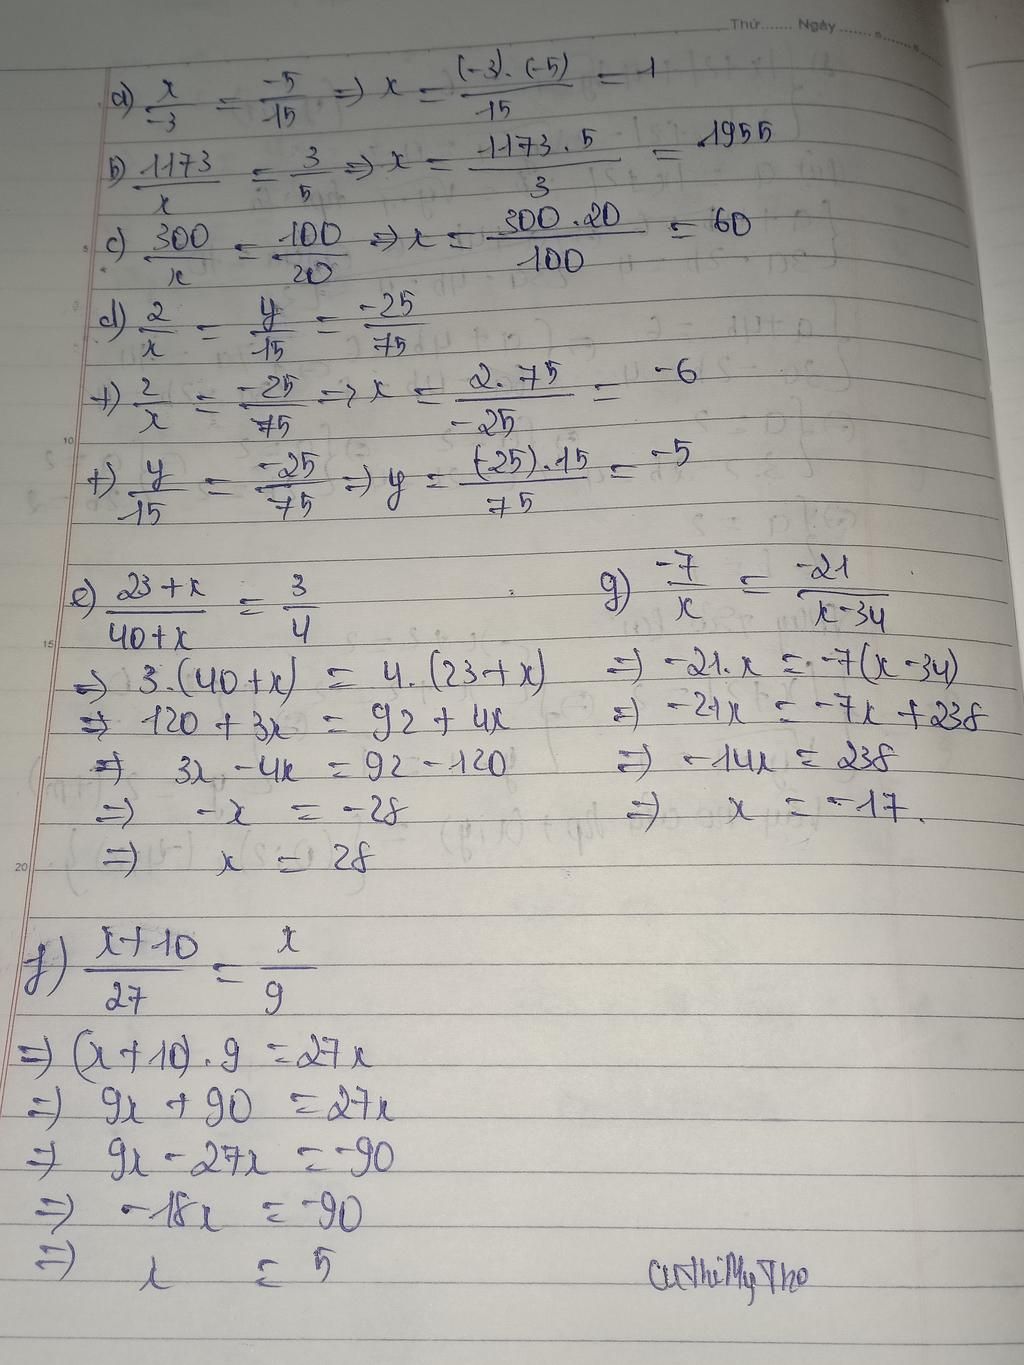 Thứ....... Ngày
a) x/-3 = -5/15 => x = (-3).(-5)/15 = 1
b) 1173/x = 3/5 => x = 1173.5/3 = 1955
c) 300/x = 100/20 => x = 300.20/100 = 60
d) 2/x = y/15 = -25/75
+) 2/x = -25/75 => x = 2.75/-25 = -6
+) y/15 = -25/75 => y = (-25).15/75 = -5
e) 23+x/40+x = 3/4
=> 3.(40+x) = 4.(23+x)
=> 120 + 3x = 92 + 4x
=> 3x - 4x = 92 - 120
=> -x = -28
=> x = 28
g) -7/x = -21/x-34
=> -21.x = -7(x-34)
=> -21x = -7x + 238
=> -14x = 238
=> x = -17.
f) x+10/27 = x/9
=> (x+10).9 = 27x
=> 9x + 90 = 27x
=> 9x - 27x = -90
=> -18x = -90
=> x = 5